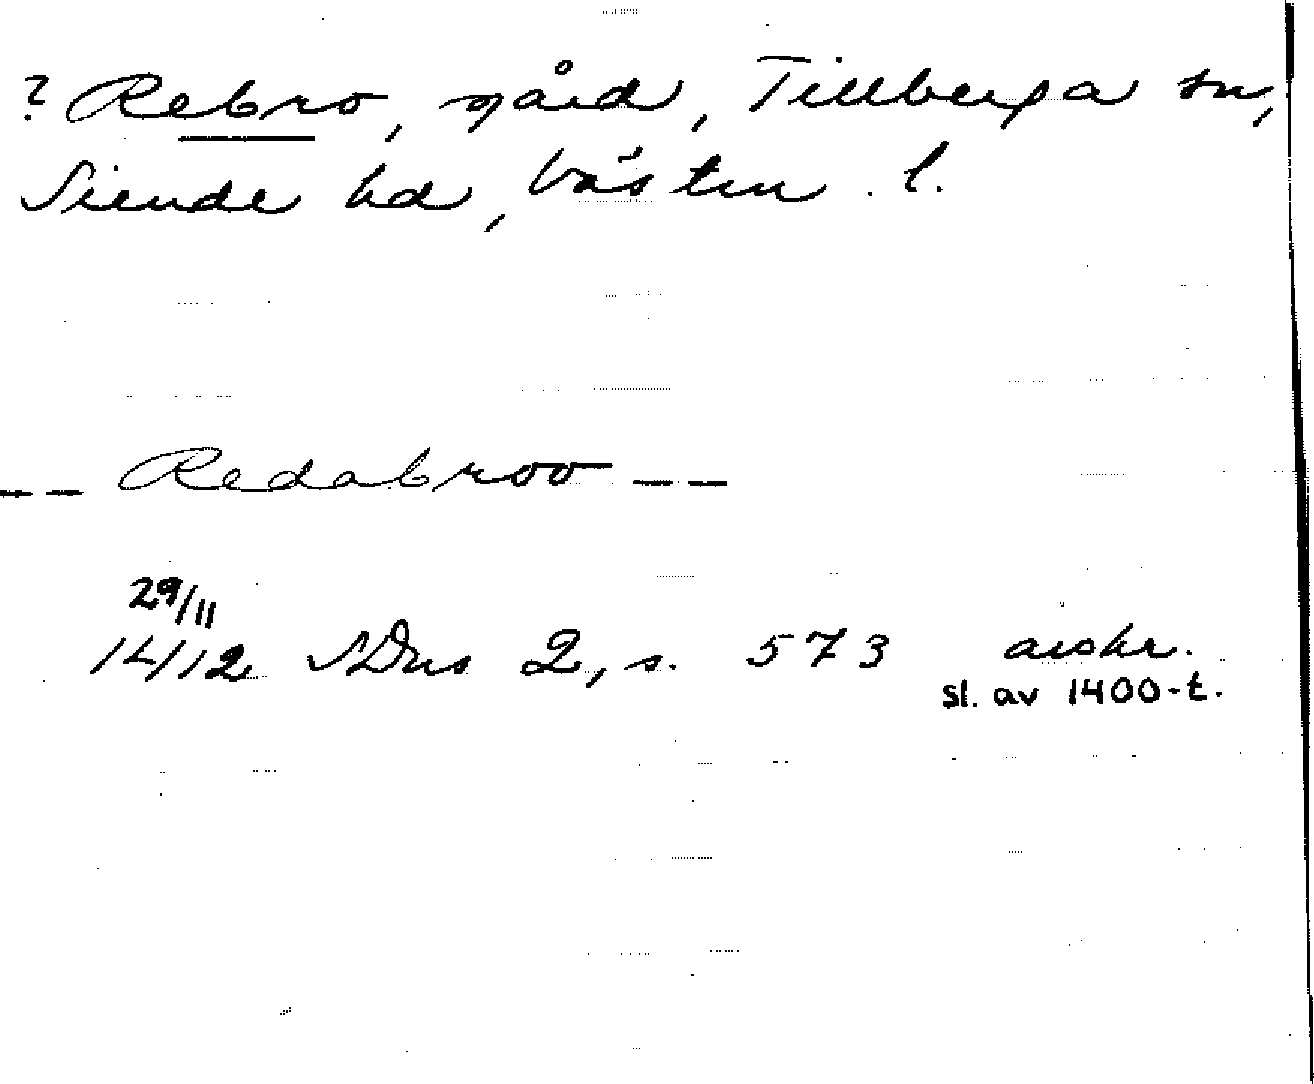 ? Rebro, gård, Tillberga sn,
Siende hd, Västm. l.
-- Redabroo --
29/11
14/12 SDns 2, s. 573 avskr.
sl. av 1400-t.